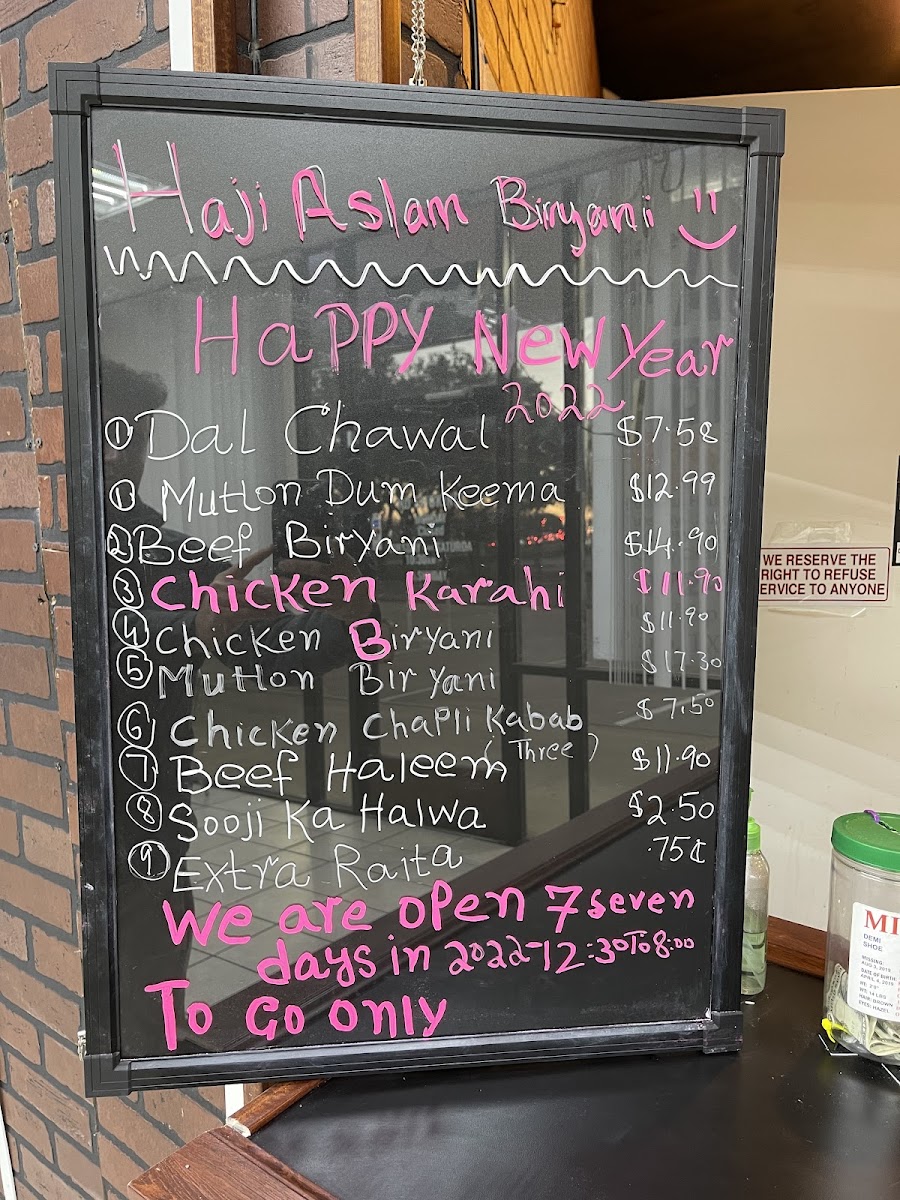 Haji Aslam Biryani
Happy New Year
2022
① Dal Chawal $7.58
① Mutton Dum Keema $12.99
② Beef Biryani $14.90
③ Chicken Karahi $11.90
④ Chicken Biryani $11.90
⑤ Mutton Biryani $17.30
⑥ Chicken Chapli Kabab $7.50
(Three)
⑦ Beef Haleem $11.90
⑧ Sooji Ka Halwa $2.50
⑨ Extra Raita .75¢
We are open 7 seven
days in 2022-12:30 To 8:00
To Go only
WE RESERVE THE
RIGHT TO REFUSE
ERVICE TO ANYONE
MI
DEMI
SHOE
MISSING:
AUG 3, 2019
DATE OF BIRTH
HAIR: BROWN
EYES: HAZEL